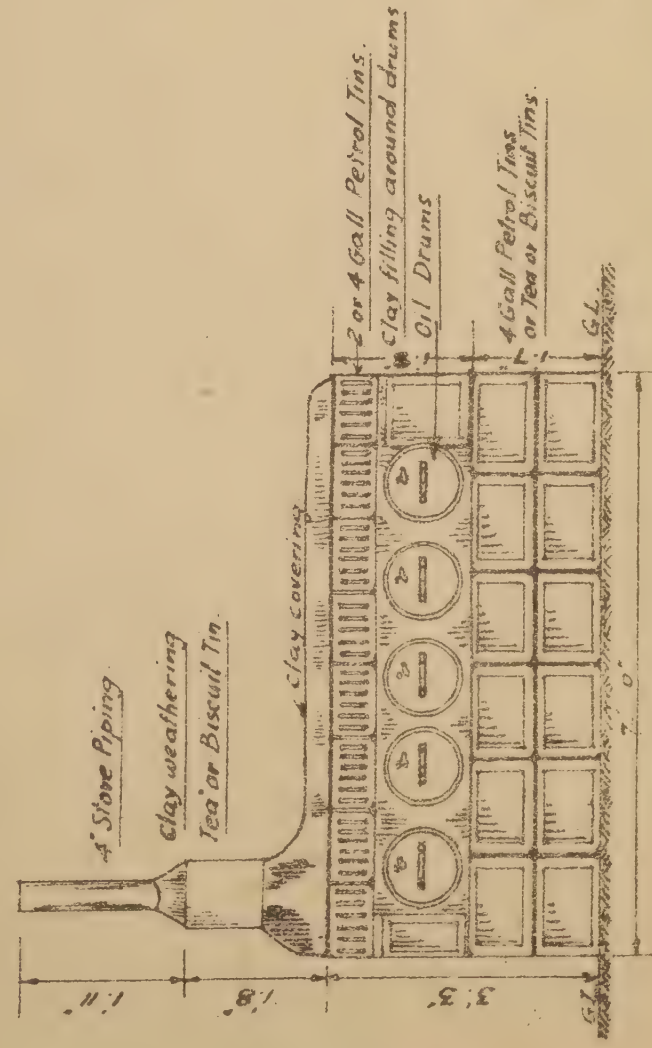 4" Stove Piping
Clay weathering
Tea or Biscuit Tin.
Clay covering
2 or 4 Gall Petrol Tins.
Clay filling around drums
Oil Drums
4 Gall Petrol Tins
or Tea or Biscuit Tins.
1'.11"
1'.8"
3'.3"
1'.7"
G L
G L
7' 0"